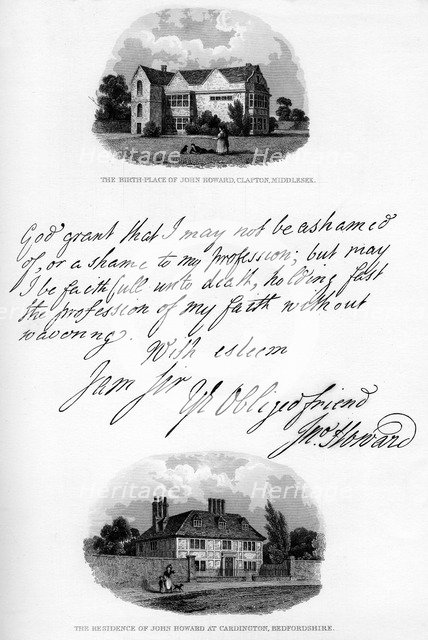 THE BIRTH-PLACE OF JOHN HOWARD, CLAPTON, MIDDLESEX.
God grant that I may not be ashamed
of, or a shame to my profession; but may
I be faithfull unto death, holding fast
the profession of my faith without
wavering.
With esteem
I am Sir
Yr Obliged friend
Jno Howard
THE RESIDENCE OF JOHN HOWARD AT CARDINGTON, BEDFORDSHIRE.